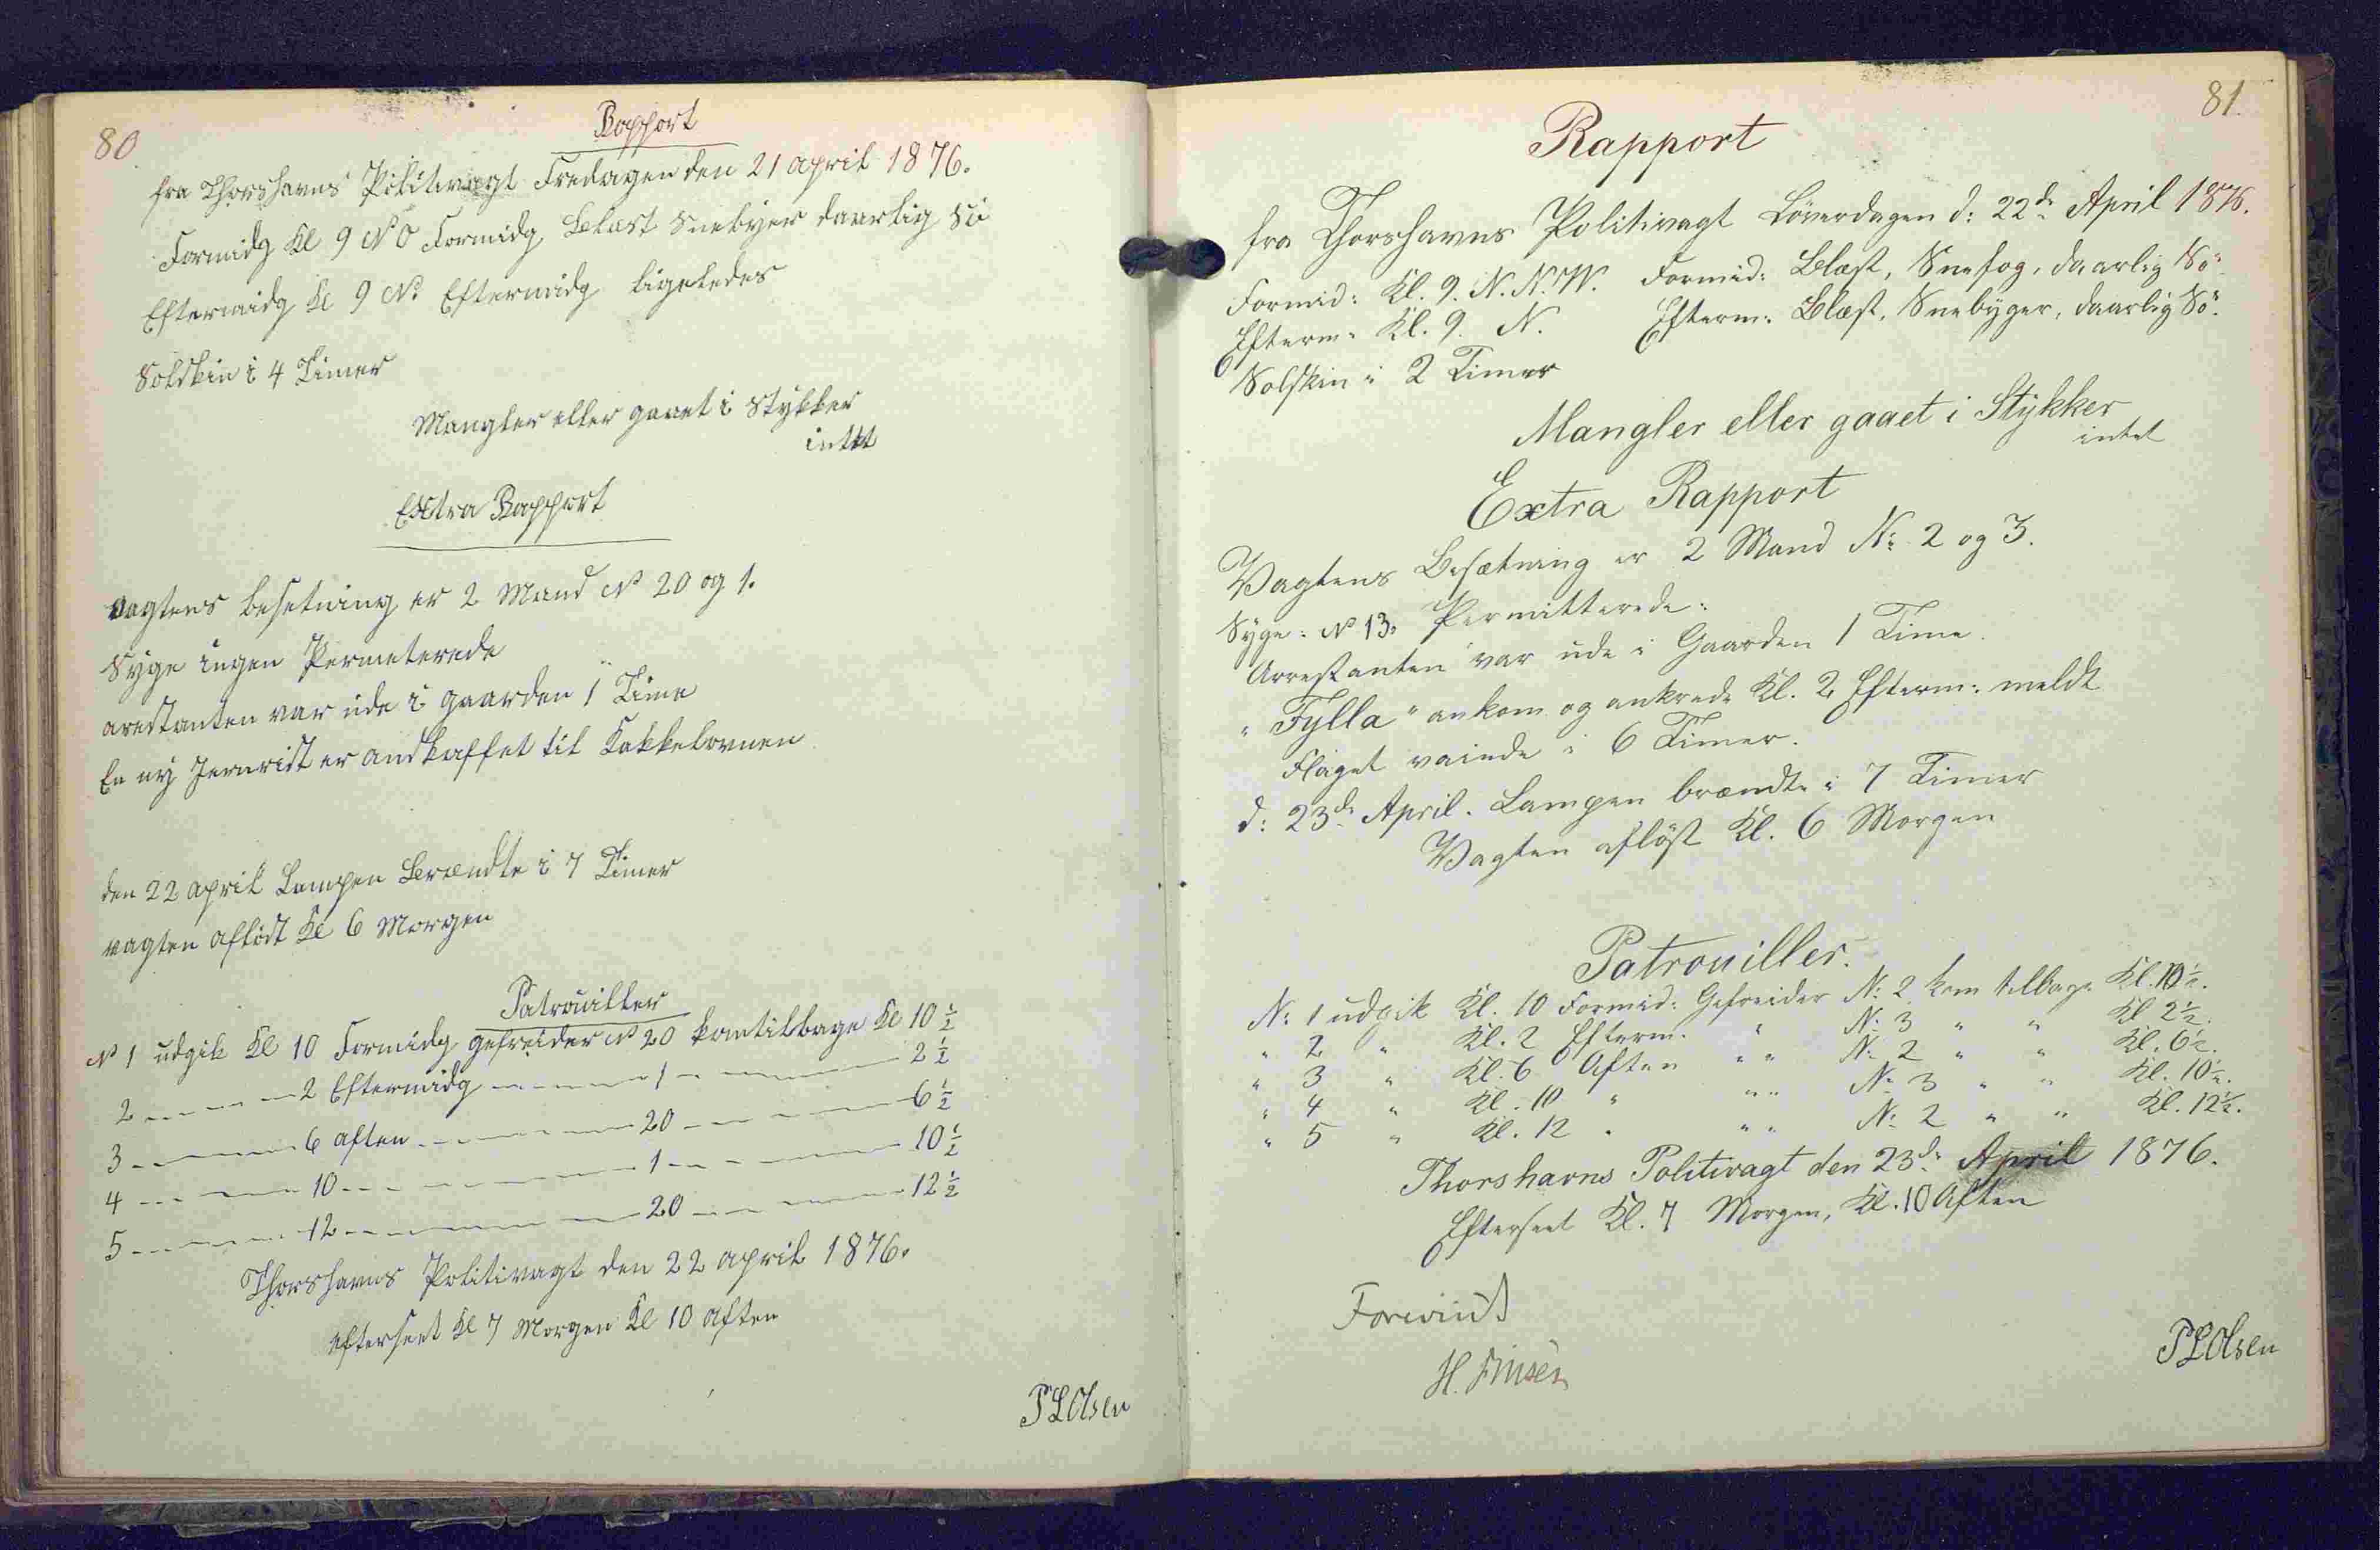 80
Rapport
fra Thorshavns Politivagt Fredagen den 21 april 1876.
Formidg Kl 9 NO Formidg Blæst Snebyer daarlig Sö
Eftermidg Kl 9 N. Eftermidg ligeledes
Solskin i 4 Timer
Mangler eller gaaet i Stykker
intet
Extra Rapport
vagtens besetning er 2 Mand No 20 og 1.
Syge ingen Permeterede
arestanten var ude i gaarden 1 Time
En ny Jernrist er anskaffet til Kakkelovnen
den 22 april Lampen Brændte i 7 Timer
vagten aflöst Kl 6 Morgen
Patrouiller
No 1 udgik Kl 10 Formidg gefreider No 20 kom tilbage Kl 10 ½
2 — — — 2 Eftermidg — — — 1 — — — 2 ½
3 — — — 6 aften — — — 20 — — — 6 ½
4 — — — 10 — — — 1 — — — 10 ½
5 — — — 12 — — — 20 — — — 12 ½
Thorshavns Politivagt den 22 april 1876.
efterseet Kl 7 Morgen Kl 10 Aften
PLOlsen
81.
Rapport
fra Thorshavns Politivagt Löverdagen d: 22de April 1876.
Formid: Kl. 9. N.N.W. Formid: Blæst, Snefog, daarlig Sö.
Efterm: Kl. 9. N. Efterm: Blæst, Snebyger, daarlig Sö.
Solskin i 2 Timer
Mangler eller gaaet i Stykker
intet
Extra Rapport
Vagtens Besætning er 2 Mand No 2 og 3.
Syge: No 13. Permitterede:
Arrestanten var ude i Gaarden 1 Time.
"Fylla" ankom og ankrede Kl. 2 Efterm: meldt
Flaget vaiede i 6 Timer.
d: 23de April. Lampen brændte i 7 Timer
Vagten aflöst Kl. 6 Morgen
Patrouiller.
No 1 udgik Kl. 10 Formid: Gefreider No 2 kom tilbage Kl. 10 ½.
" 2 " Kl. 2 Efterm. " No 3 " " Kl 2 ½.
" 3 " Kl. 6 Aften " " No 2 " " Kl. 6 ½.
" 4 " Kl. 10 " " " No 3 " " Kl. 10 ½.
" 5 " Kl. 12 " " " No 2 " " Kl. 12 ½.
Thorshavns Politivagt den 23de April 1876.
Efterseet Kl. 7 Morgen, Kl. 10 Aften
Foreviist
H. Finsen
PLOlsen